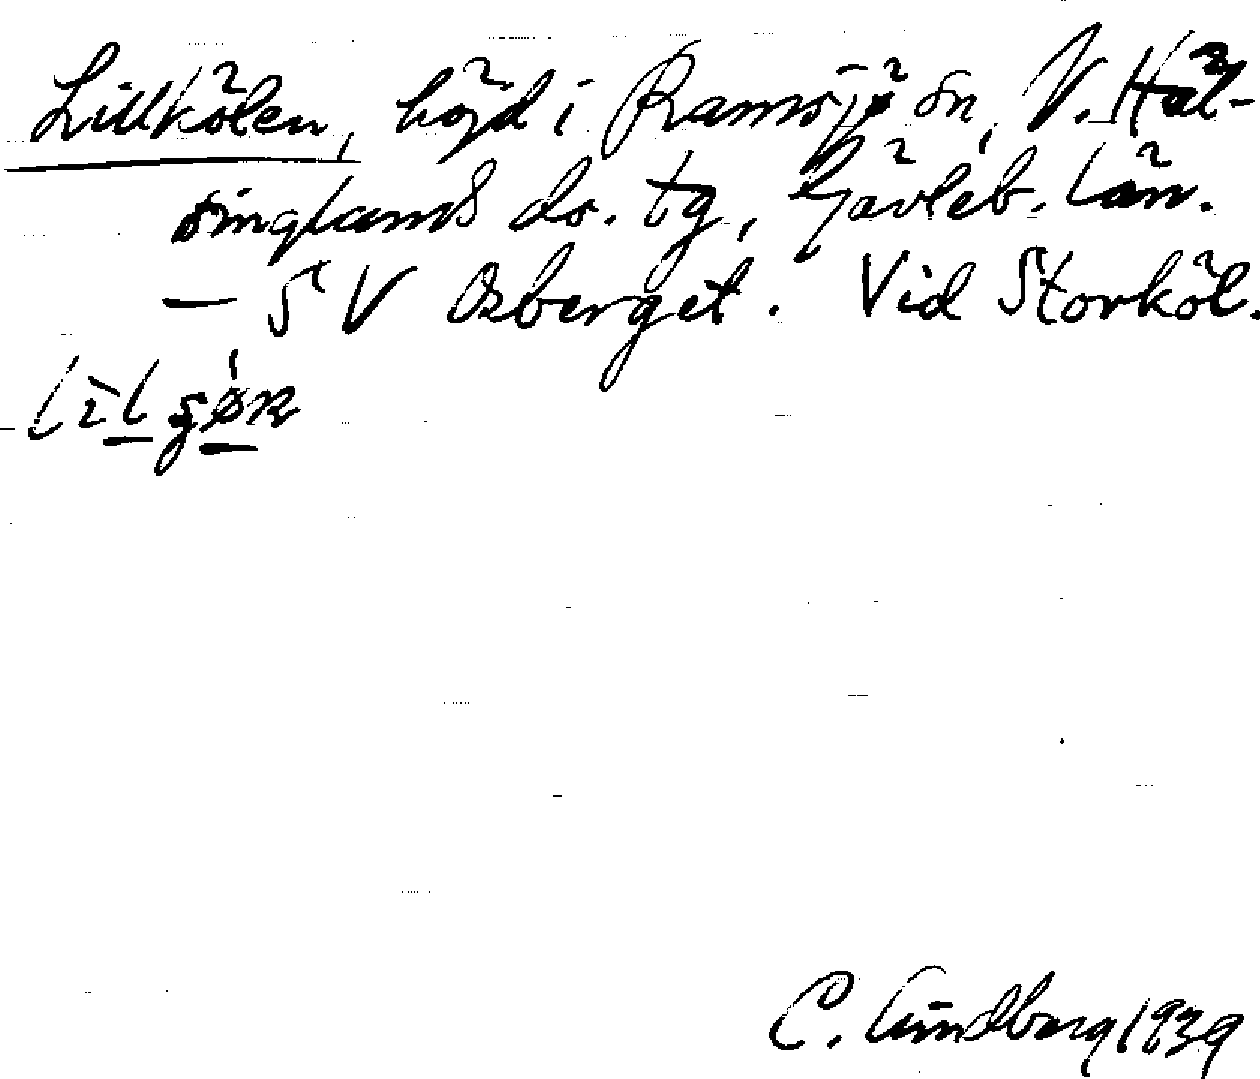 Lillkölen, höjd i Ramsjö sn, V. Häl-
singlands ds. tg, Gävleb. län.
— SV Osberget. Vid Storköl.
C. Lundberg 1939